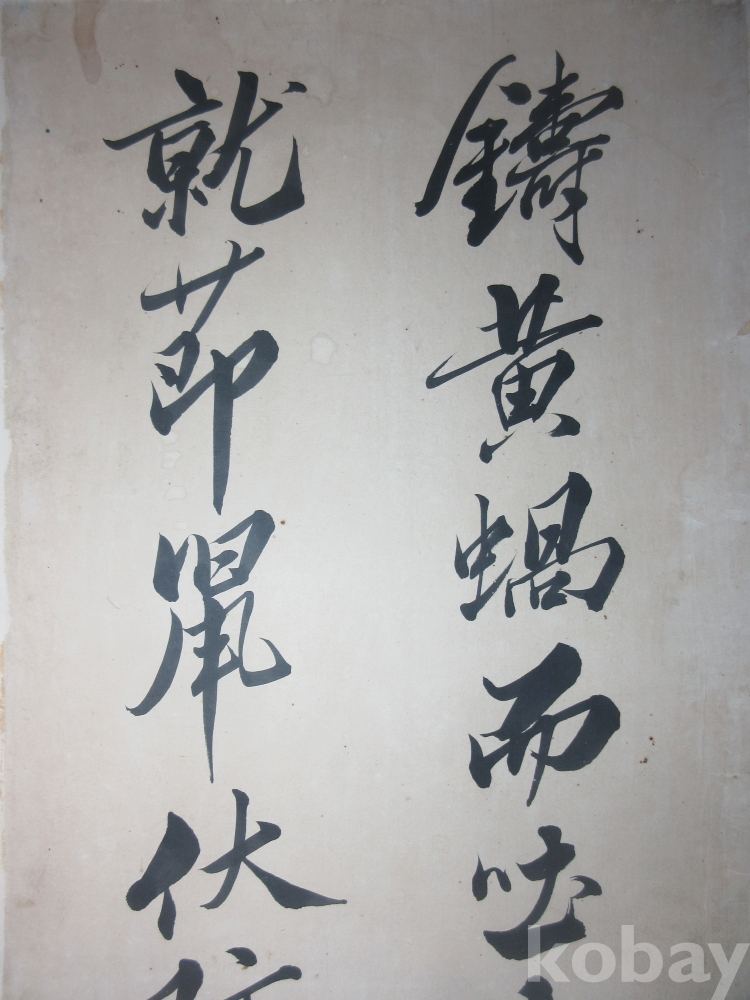 鑄黃蝸而吐
就節鼠伏
kobay